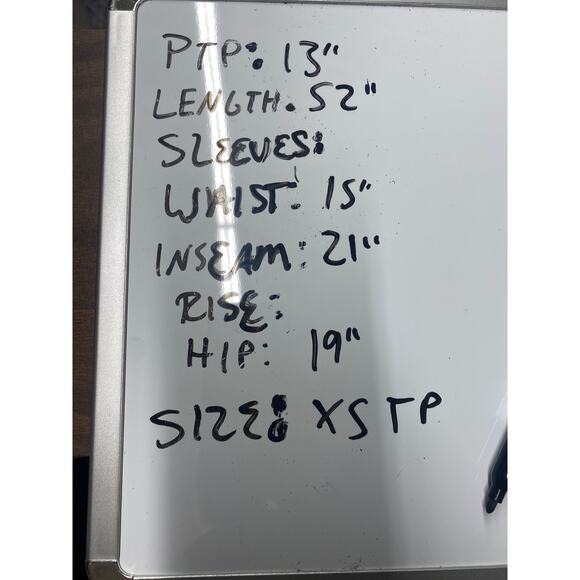 PTP: 13"
LENGTH. 52"
SLEEVES:
WAIST: 15"
INSEAM: 21"
RISE:
HIP: 19"
SIZE: XS TP